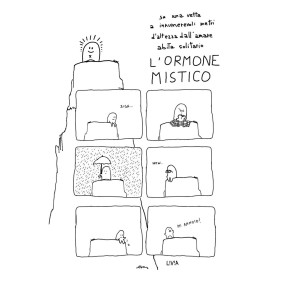 su una vetta
a innumerevoli metri
d'altezza dall'amare
abita solitario
L'ORMONE
MISTICO
LIVIA